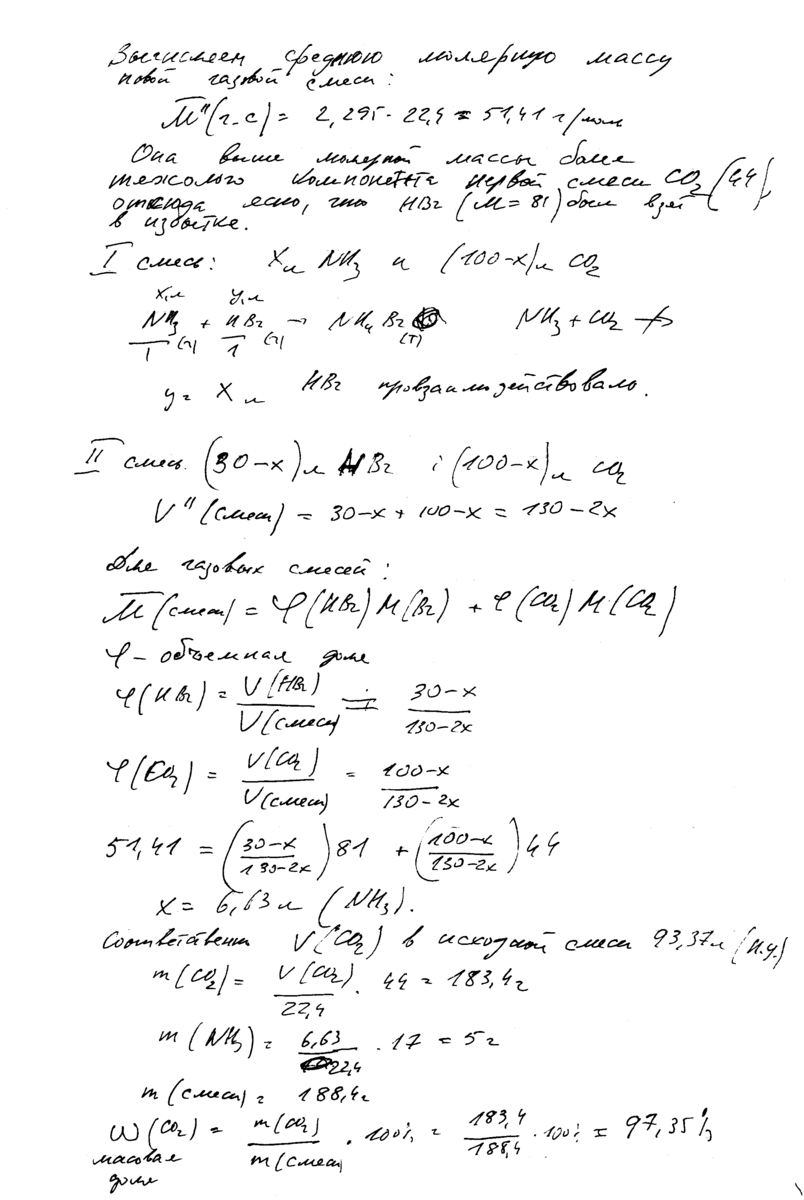 Вычисляем среднюю молярную массу
новой газовой смеси:
M̅"(г.с) = 2,295 · 22,4 = 51,41 г/моль
Она выше молярной массы более
тяжолого компонента первой смеси CO₂ (44),
откюда ясно, что HBr (M = 81) был взят
в избытке.
I смесь: Xл NH₃ и (100-x)л CO₂
x,л y,л
NH₃ + HBr → NH₄Br NH₃ + CO₂ ↛
1 (г) 1 (г) (т)
y = X л HBr провзаимодействовало.
II смесь (30-x)л HBr i (100-x)л CO₂
V"(смеси) = 30-x + 100-x = 130-2x
Для газовых смесей:
M̅(смеси) = φ(HBr) M(Br) + φ(CO₂) M(CO₂)
φ - объемная доля
φ(HBr) = V(HBr) / V(смеси) = 30-x / 130-2x
φ(CO₂) = V(CO₂) / V(смеси) = 100-x / 130-2x
51,41 = (30-x / 130-2x) 81 + (100-x / 130-2x) 44
x = 6,63 л (NH₃).
Соответственн V(CO₂) в исходной смеси 93,37л (н.у.)
m(CO₂) = V(CO₂) / 22,4 · 44 = 183,4г
m(NH₃) = 6,63 / 22,4 · 17 = 5г
m(смеси) = 188,4г
ω(CO₂) = m(CO₂) / m(смеси) · 100% = 183,4 / 188,4 · 100% = 97,35%
масовая
доля